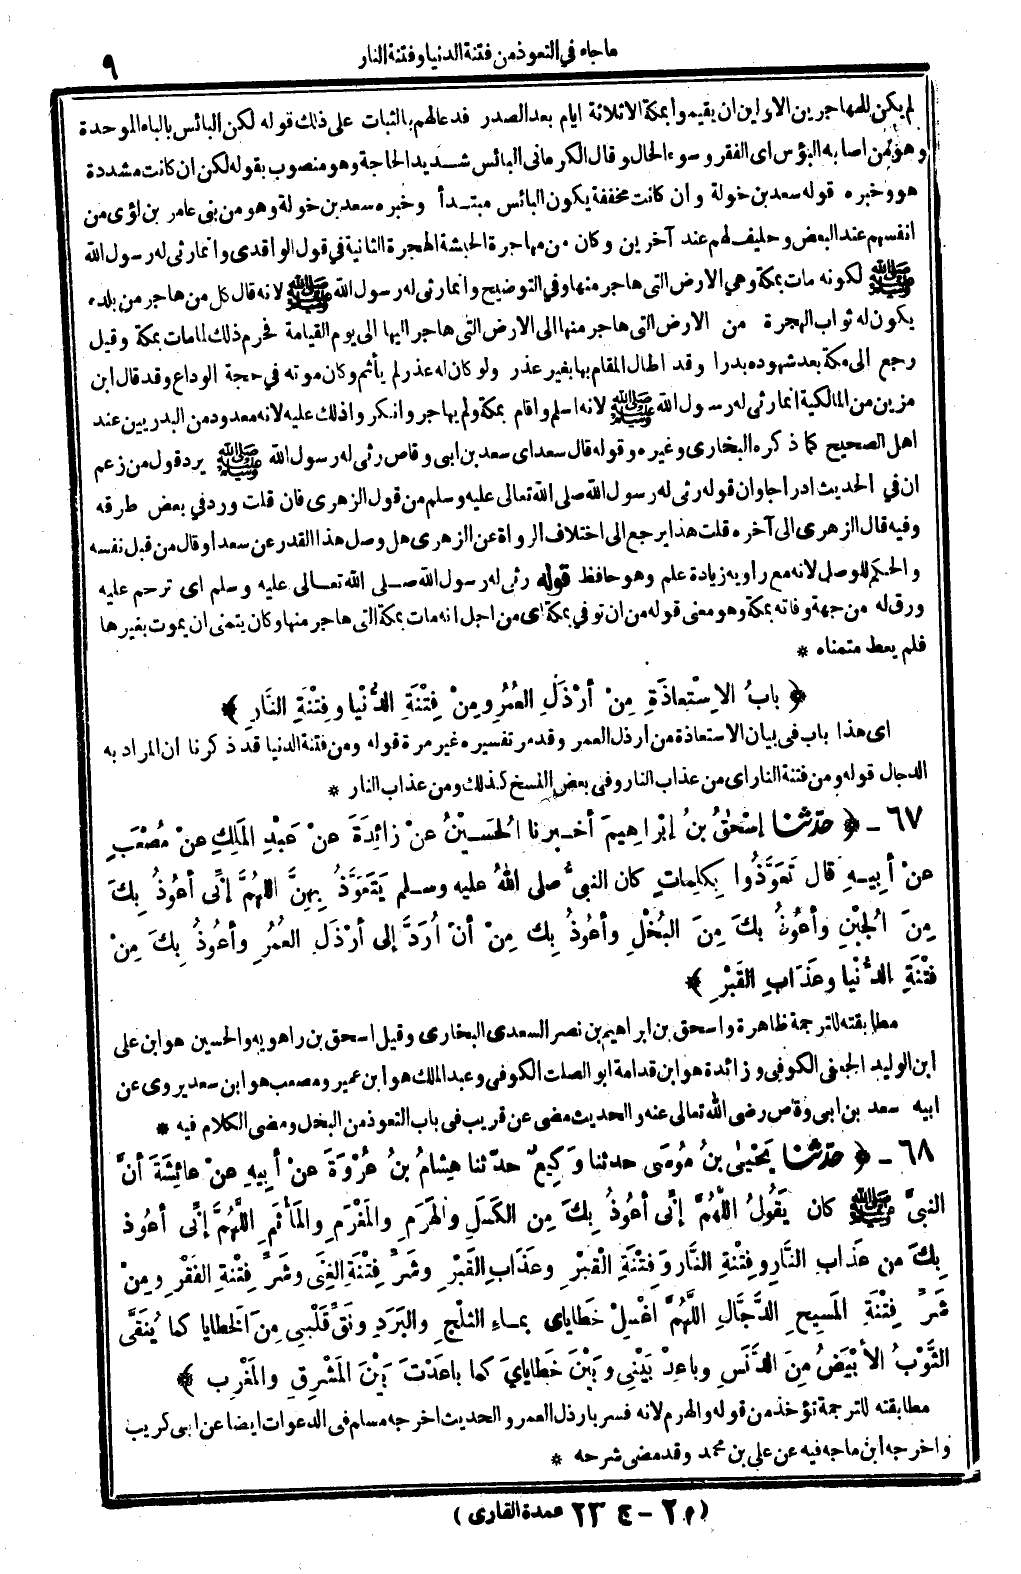 ماجاء في التعوذ من فتنة الدنيا وفتنة النار
٩
لم يكن للمهاجرين الاولين ان يقيموا بمكة الا ثلاثة ايام بعد الصدر فدعا لهم بالثبات على ذلك قوله لكن البائس بالباء الموحدة
وهو من اصابه البؤس اى الفقر وسوء الحال وقال الكرمانى البائس شديد الحاجة وهو منصوب بقوله لكن ان كانت مشددة
هو وخبره قوله سعد بن خولة وان كانت مخففة يكون البائس مبتدأ وخبره سعد بن خولة وهو من بنى عامر بن لؤى من
انفسهم عند البعض وحليف لهم عند آخرين وكان من مهاجرة الحبشة الهجرة الثانية في قول الواقدى وانما رثى له رسول الله
ﷺ لكونه مات بمكة وهي الارض التى هاجر منها وفي التوضيح وانما رثى له رسول الله ﷺ لانه قال كل من هاجر من بلده
يكون له ثواب الهجرة من الارض التى هاجر منها الى الارض التى هاجر اليها الى يوم القيامة فحرم ذلك لما مات بمكة وقيل
رجع الى مكة بعد شهوده بدرا وقد اطال المقام بها بغير عذر ولو كان له عذر لم يأثم وكان موته في حجة الوداع وقد قال ابن
مزين من المالكية انما رثى له رسول الله ﷺ لانه اسلم واقام بمكة ولم يهاجر وانكروا ذلك عليه لانه معدود من البدريين عند
اهل الصحيح كما ذكره البخارى وغيره وقوله قال سعد اى سعد بن ابى وقاص رثى له رسول الله ﷺ يرد قول من زعم
ان في الحديث ادراجا وان قوله رثى له رسول الله صلى الله تعالى عليه وسلم من قول الزهرى فان قلت ورد في بعض طرقه
وفيه قال الزهرى الى آخره قلت هذا يرجع الى اختلاف الرواة عن الزهرى هل وصل هذا القدر عن سعد او قال من قبل نفسه
والحكم للوصل لانه مع راويه زيادة علم وهو حافظ قوله رثى له رسول الله صلى الله تعالى عليه وسلم اى ترحم عليه
ورق له من جهة وفاته بمكة وهو معنى قوله من ان توفي بمكة اى من اجل انه مات بمكة التى هاجر منها وكان يتمنى ان يموت بغيرها
فلم يعط متمناه *
﴿ بابُ الاِسْتِعاذَةِ مِنْ أرْذَلِ العُمُرِ ومِنْ فِتْنَةِ الدُّنْيا وفِتْنَةِ النَّارِ ﴾
اى هذا باب فى بيان الاستعاذة من ارذل العمر وقد مر تفسيره غير مرة قوله ومن فتنة الدنيا قد ذكرنا ان المراد به
الدجال قوله ومن فتنة النار اى من عذاب النار وفى بعض النسخ كذلك ومن عذاب النار *
٦٧ ـ ﴿ حدّثنا إسْحٰقُ بنُ إبْراهِيمَ أخبرنا الحُسَيْنُ عنْ زائِدَةَ عنْ عَبْدِ المَلِكِ عنْ مُصْعَبٍ
عنْ أبِيهِ قال تَعَوَّذُوا بِكلِماتٍ كان النبيُّ صلى اللهُ عليه وسلم يَتَعَوَّذُ بِهِنَّ اللهُمَّ إنِّى أعُوذُ بِكَ
مِنَ الجُبْنِ وأعُوذُ بِكَ مِنَ البُخْلِ وأعُوذُ بِكَ مِنْ أنْ أُرَدَّ إلى أرْذَلِ العُمُرِ وأعُوذُ بِكَ مِنْ
فِتْنَةِ الدُّنْيا وعَذَابِ القَبْرِ ﴾
مطابقته للترجمة ظاهرة واسحق بن ابراهيم بن نصر السعدى البخارى وقيل اسحق بن راهويه والحسين هو ابن على
ابن الوليد الجعفى الكوفى وزائدة هو ابن قدامة ابو الصلت الكوفى وعبد الملك هو ابن عمير ومصعب هو ابن سعد يروى عن
ابيه سعد بن ابى وقاص رضى الله تعالى عنه والحديث مضى عن قريب فى باب التعوذ من البخل ومضى الكلام فيه *
٦٨ ـ ﴿ حدّثنا يَحْيىٰ بنُ مُوسَى حدثنا وَكِيعٌ حدّثنا هِشامُ بنُ عُرْوَةَ عنْ أبِيهِ عنْ عائِشَةَ أنَّ
النبيَّ ﷺ كان يَقُولُ اللّٰهُمَّ إنِّى أعُوذُ بِكَ مِن الكَسَلِ والهَرَمِ والمَغْرَمِ والمَأثَمِ اللّٰهُمَّ إنِّى أعُوذُ
بِكَ من عَذابِ النَّارِ وفِتْنَةِ النَّارِ وَفِتْنَةِ القَبْرِ وعَذَابِ القَبْرِ وشَرِّ فِتْنَةِ الغِنَى وشَرِّ فِتْنَةِ الفَقْرِ ومِنْ
شَرِّ فِتْنَةِ المَسِيحِ الدَّجَّالِ اللّٰهُمَّ اغْسِلْ خَطاياىَ بِماءِ الثلْجِ والبَرَدِ ونَقِّ قَلْبِي مِنَ الخَطايا كما يُنَقَّى
الثَّوْبُ الأبْيَضُ مِنَ الدَّنَسِ وباعِدْ بَيْنِي وبَيْنَ خَطايايَ كما باعَدْتَ بَيْنَ المَشْرِقِ والمَغْرِبِ ﴾
مطابقته للترجمة تؤخذ من قوله والهرم لانه فسر بارذل العمر والحديث اخرجه مسلم فى الدعوات ايضا عن ابى كريب
واخرجه ابن ماجه فيه عن على بن محمد وقد مضى شرحه *
(م ٢ ـ ج ٢٣ عمدة القارى)